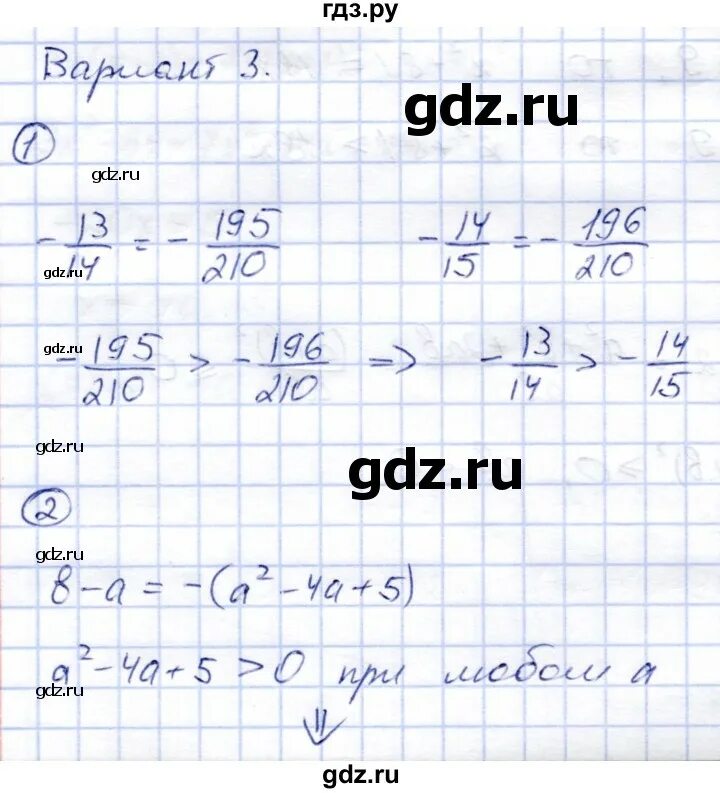 гдз.ру
Вариант 3.
gdz.ru
1
gdz.ru
-13/14 = -195/210    -14/15 = -196/210
gdz.ru
gdz.ru
-195/210 > -196/210 => -13/14 > -14/15
gdz.ru
gdz.ru
2
gdz.ru
в-а = -(а²-4а+5)
а²-4а+5 > 0 при любом а
gdz.ru
⇓
gdz.ru